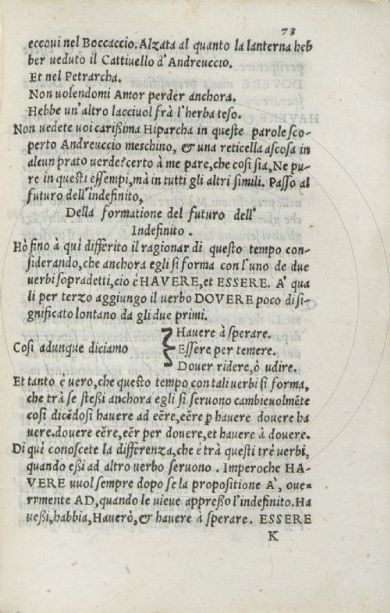 73
eccovi nel Boccaccio. Alzata al quanto la lanterna heb
ber veduto il Cattivello d'Andreuccio.
Et nel Petrarcha.
Non volendomi Amor perder anchora.
Hebbe un'altro lacciuol frà l'herba teso.
Non vedete voi carißima Hiparcha in queste parole sco-
perto Andreuccio meschino, & una reticella ascosa in
alcun prato verde? certo à me pare, che cosi sia, Ne pu-
re in questi essempi, mà in tutti gli altri simili. Passo al
futuro dell'indefinito,
Della formatione del futuro dell'
Indefinito.
Hò fino à quì differito il ragionar di questo tempo con-
siderando, che anchora egli si forma con l'uno de due
verbi sopradetti, cio è HAVERE, et ESSERE. A' qua
li per terzo aggiungo il verbo DOVERE poco di si-
gnificato lontano da gli due primi.
Havere à sperare.
Cosi adunque diciamo Essere per temere.
Dover ridere, ò udire.
Et tanto è vero, che questo tempo con tali verbi si forma,
che trà se steßi anchora egli si servono cambievolmẽte
cosi dicẽdosi havere ad eẽre, eẽre ꝑ havere dovere ha
vere. dovere eẽre, eẽr per dovere, et havere à dovere.
Di quì conoscete la differenza, che è trà questi trè verbi,
quando eßi ad altro verbo servono. Imperoche HA-
VERE vuol sempre dopo se la propositione A', ove-
ramente AD, quando le vieve appreßo l'indefinito. Ha
veßi, habbia, Haverò, & havere à sperare. ESSERE
K